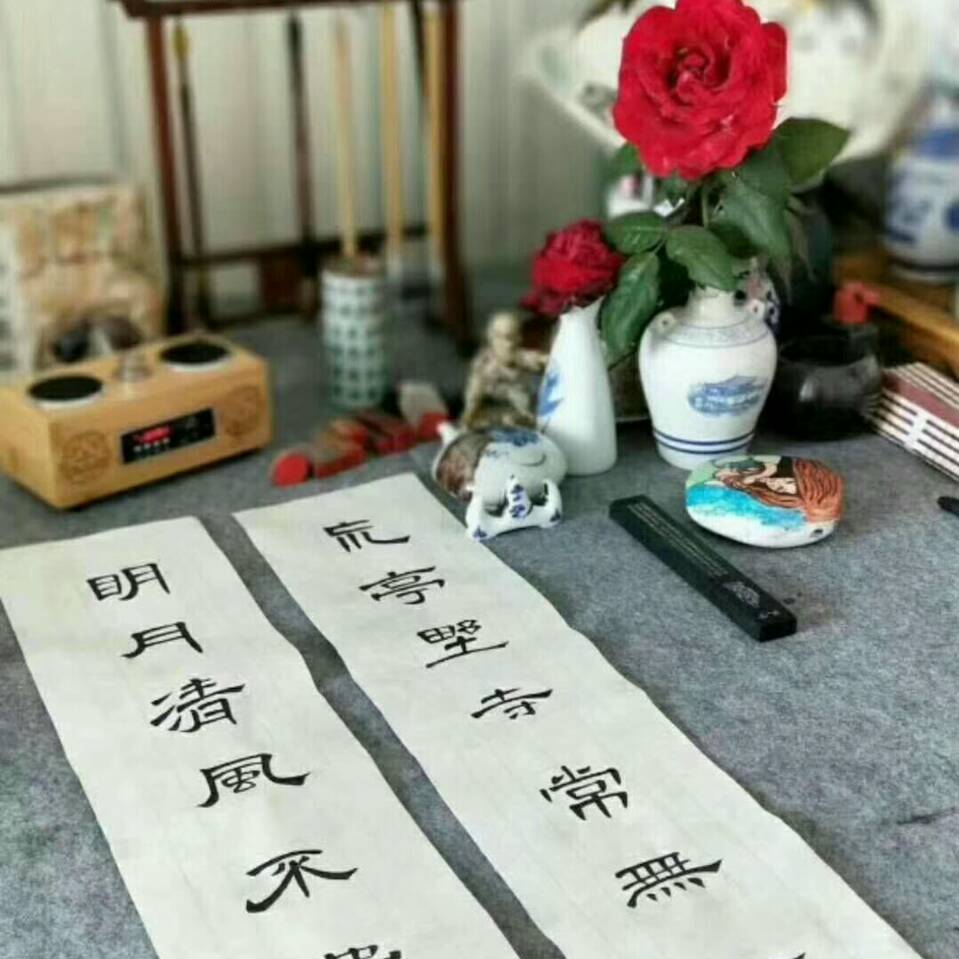 荒亭野寺常無
明月清風不